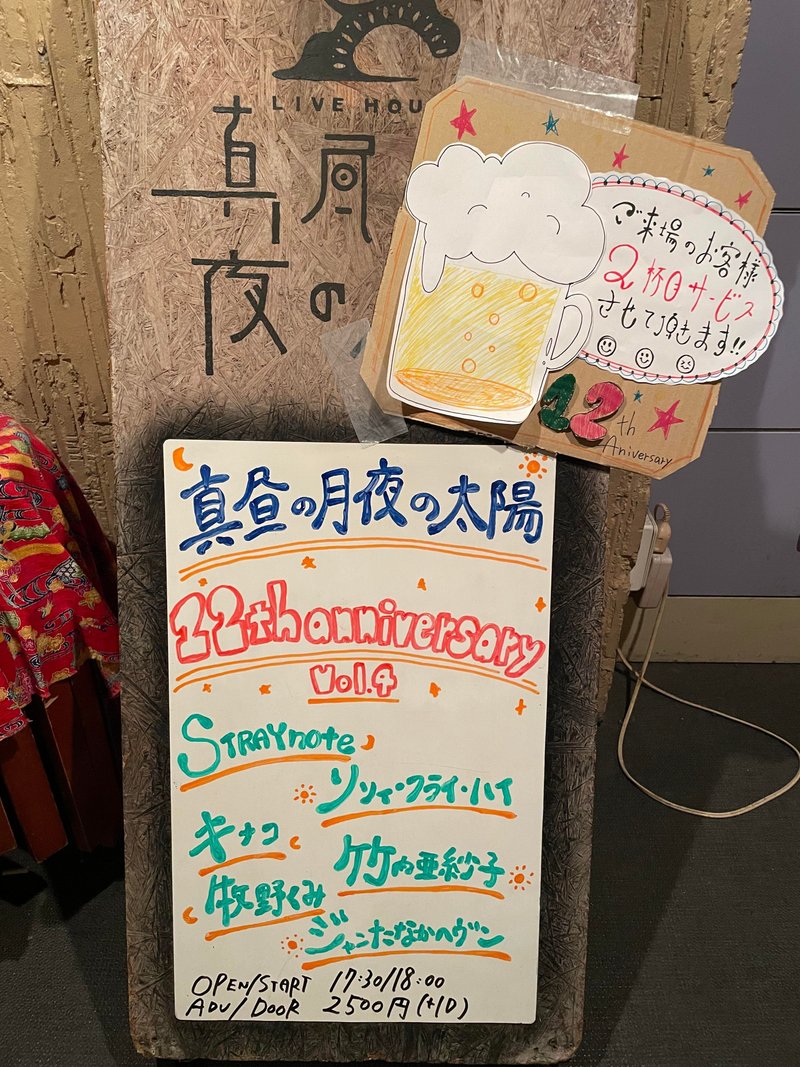 LIVE HOU
真昼
夜の
ご来場のお客様
2杯目サービス
させて頂きます!!
12th
Aniversary
真昼の月夜の太陽
12th anniversary
Vol.4
STRAYnote
フライ・ハイ
キナコ
竹内亜紗子
牧野くみ
ジャンたなかヘヴン
OPEN/START 17:30/18:00
ADV/DOOR 2500円(+1D)